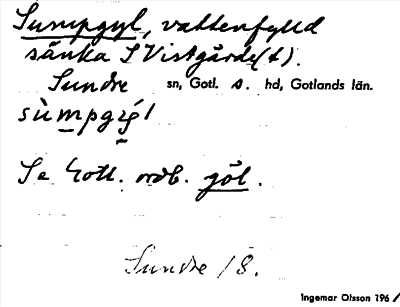 Sumpgyl, vattenfylld
sänka S Vistgårde(t).
Sundre sn, Gotl. s. hd, Gotlands län.
Se Gotl. ordb. göl.
Sundre /8.
Ingemar Olsson 196/